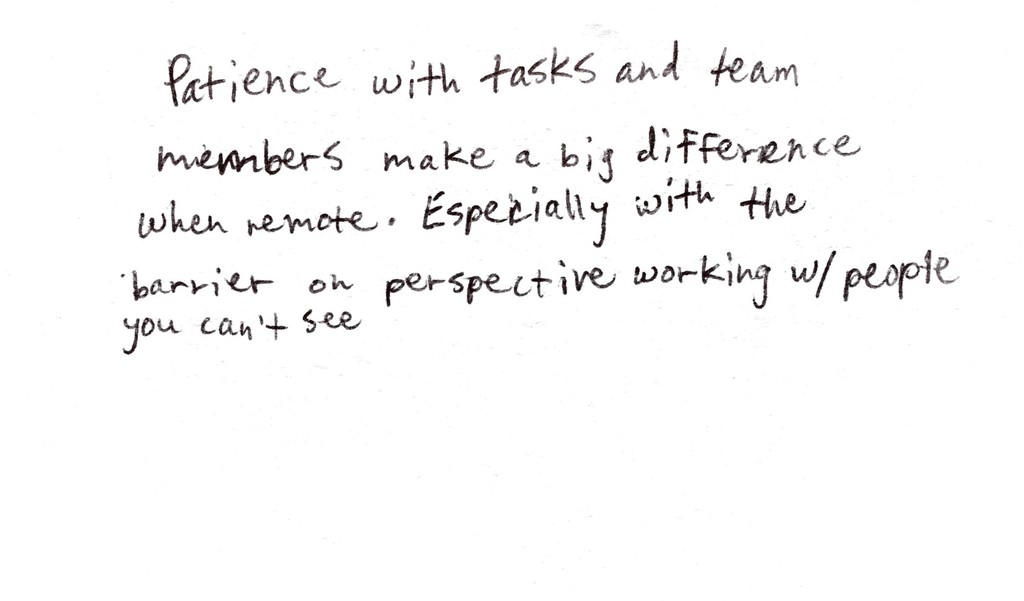 Patience with tasks and team
members make a big difference
when remote. Especially with the
barrier on perspective working w/ people
you can't see